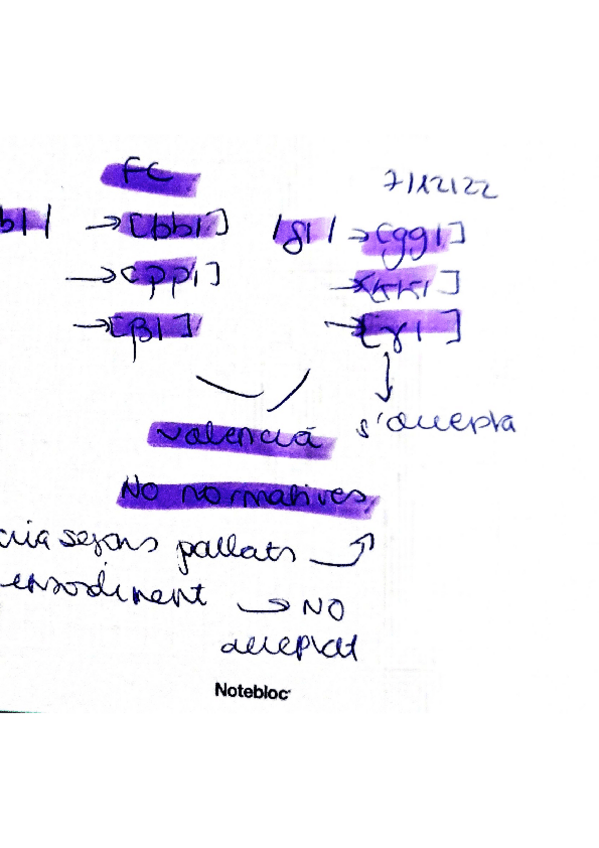 FC 7/12/22
bl/ → [bbl] /gl/ → [ggl]
→ [ppl] → [kkl]
→ [βl] → [ɣl]
↓
valencià s'accepta
No normatives
cia segons parlats
ensordiment → NO
acceptat
Notebloc